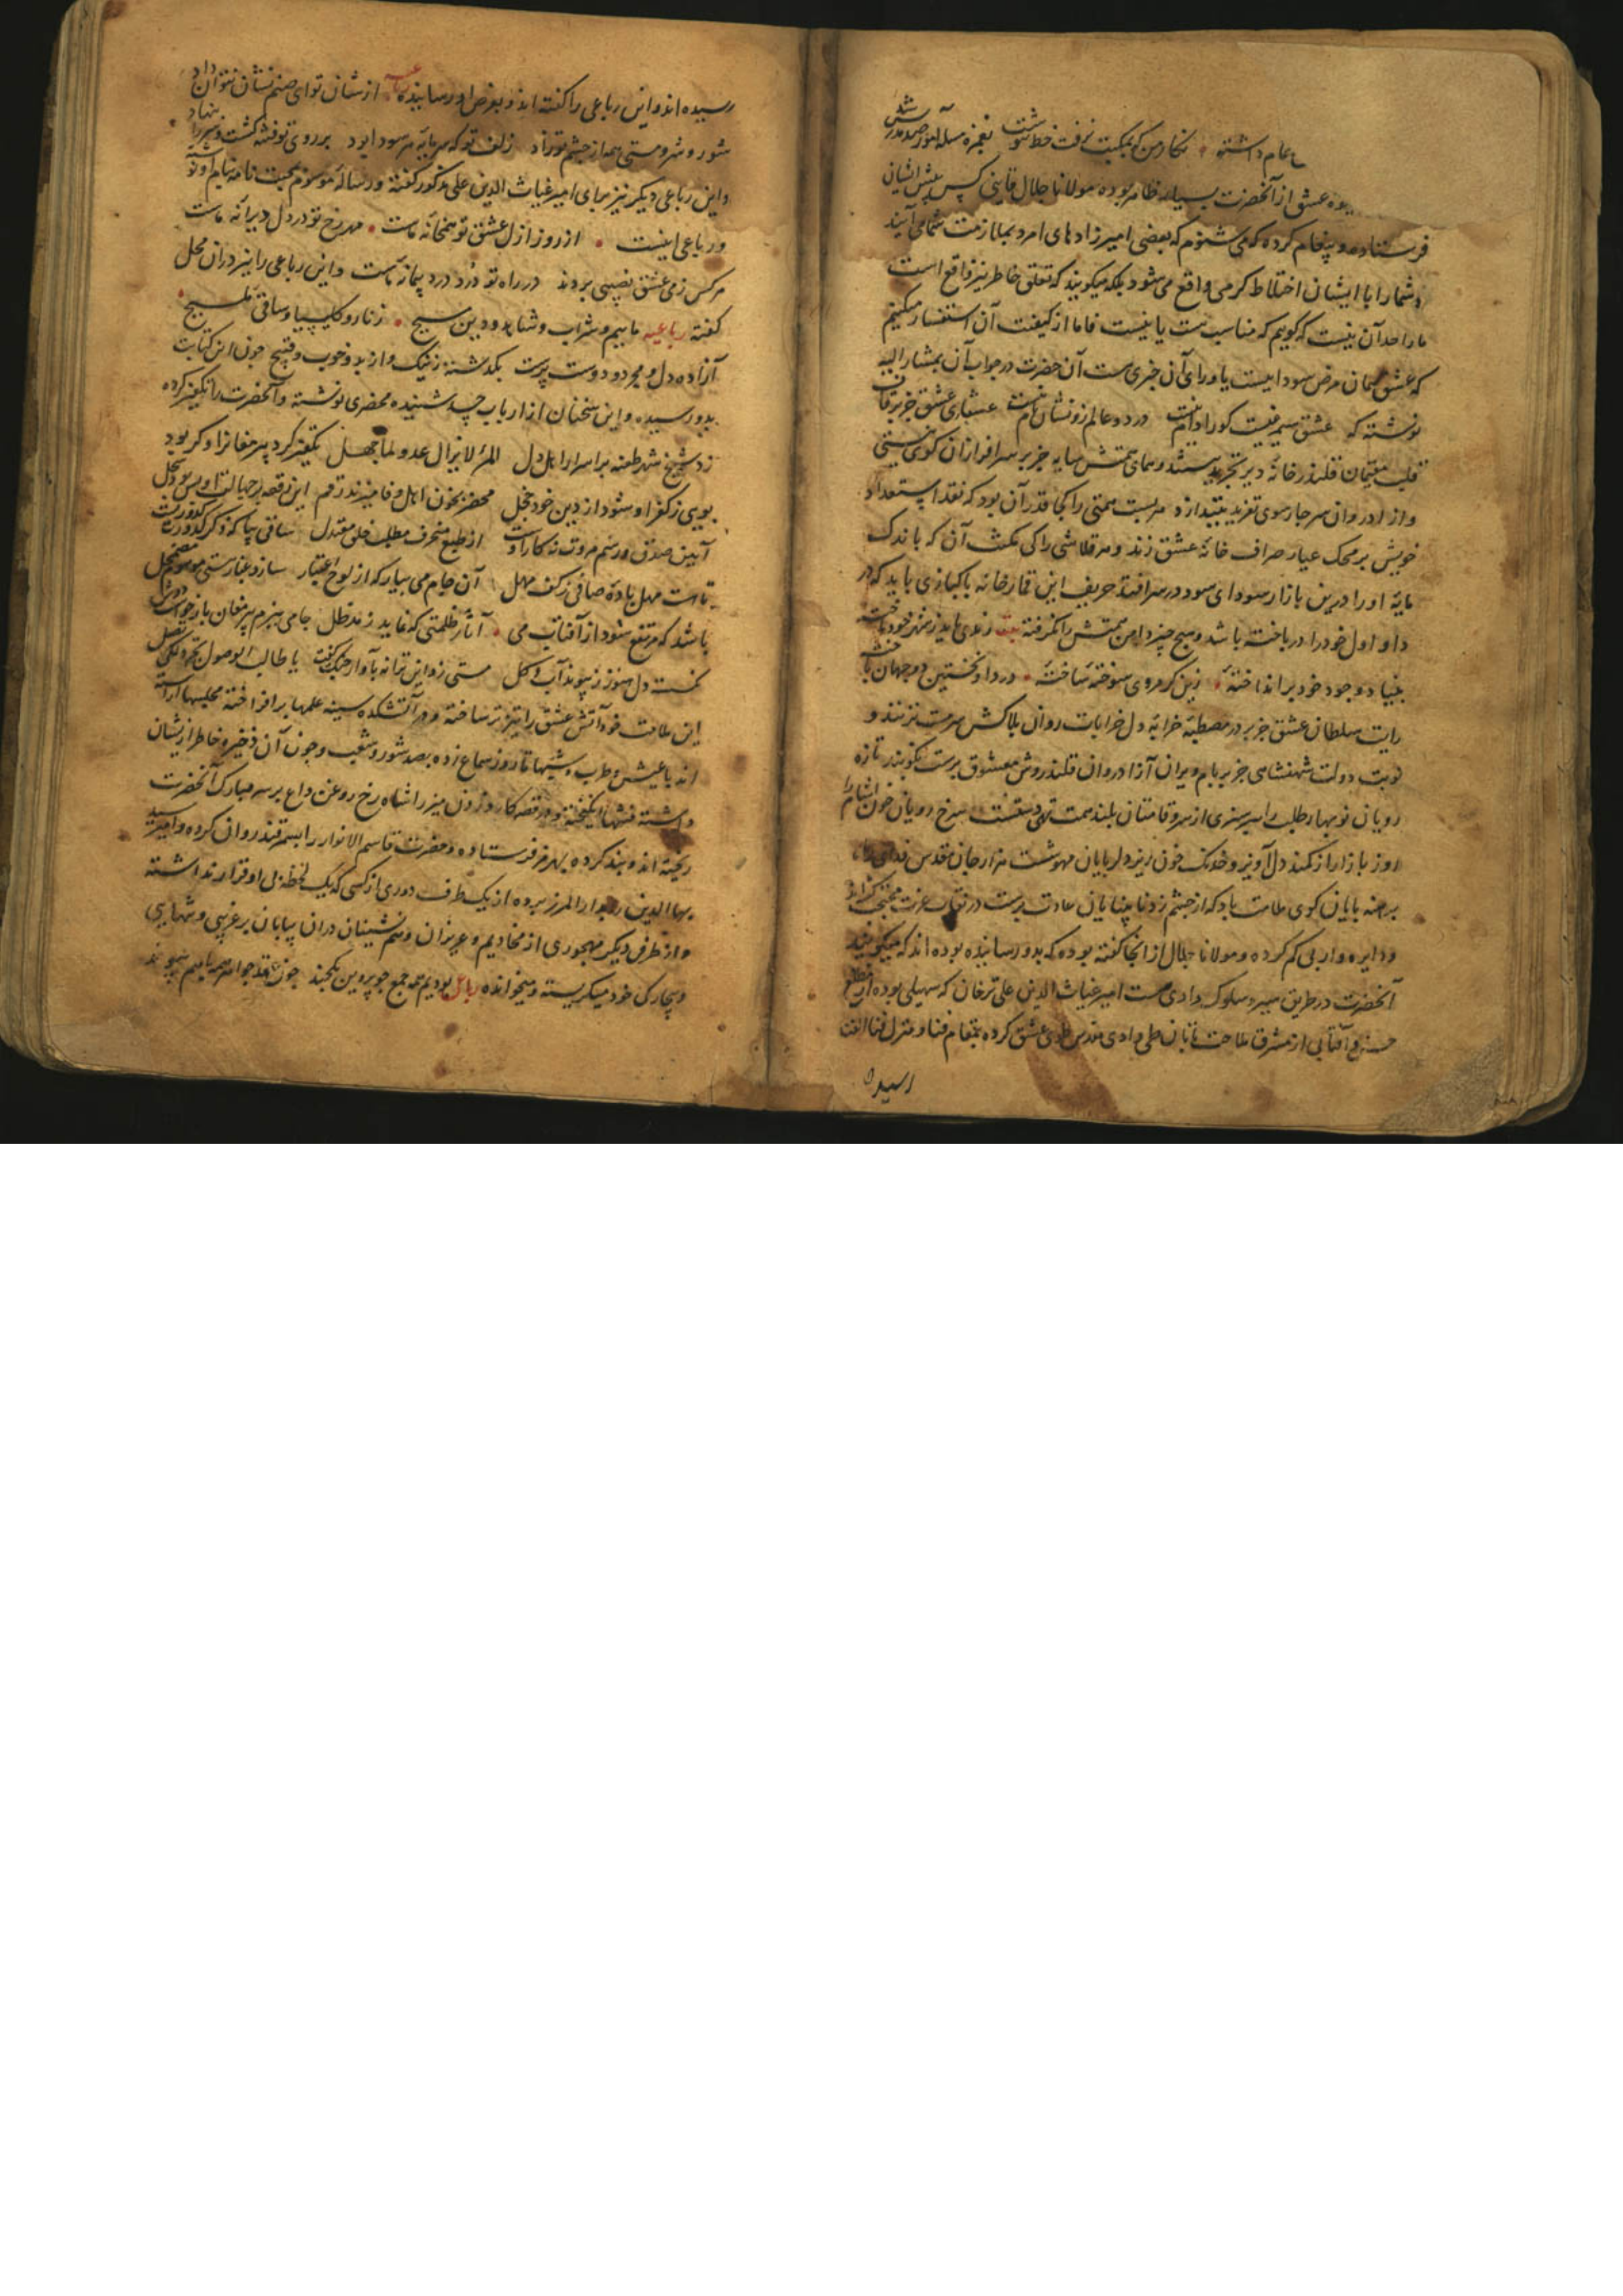 عام داشته نگار من که بمکتب نرفت و خط ننوشت بغمزه مسئله آموز صد مدرس شد
عشق از آنحضرت بسیار ظاهر بوده مولانا جلال قاینی کس پیش ایشان
فرستاده و پیغام کرده که می شنوم که بعضی امیرزادهای امرد بملازمت شما می آیند
و شما را با ایشان اختلاط کرمی واقع می شود بلکه میکویند که تعلق خاطر نیز واقع است
ما را حد آن نیست که کویم که مناسب هست یا نیست فاما از کیفیت آن استفسار میکنیم
که عشق همان مرض سوداییست یا ورای آن خبری هست آن حضرت در جواب آن بمشار الیه
نوشته که عشق سیمرغیست کورا دام نیست در دو عالم زو نشان و نام نیست عشق جز بر قاف
قلب مقیمان قلندرخانه دیر تجرید ننشیند و همای همتش سایه جز بر سرافرازان کوی نیستی
و آزادروان سرچارسوی تفرید نیندازد هر پست همتی را کجا قدر آن بود که نقد استعداد
خویش بر محک عیار صراف خانه عشق زند و هر قلاشی را کی مکنت آن که باندک
مایه او را درین بازار سودای سود در سر افتد حریف این قمارخانه پاکبازی باید که در
داو اول خود را درباخته باشد و هیچ چیز دامن همتش را نگرفته بیت رندی باید ز شهر خود تاخته
بنیاد وجود خود برانداخته زین کرم روی سوخته ساخته در داو نخستین دو جهان باخته
رایت سلطان عشق جز بر در مصطبه خرابه دل خراباتروان بلاکش سرمست نزنند و
نوبت دولت شهنشاهی جز بر بام ویران آزادروان قلندروش معشوق پرست نکوبند تازه
رویان نوبهار طلب را سرسبزی از سروقامتان بلند همت تهی دستست سرخ رویان خون آشام را
روز بازار از کمند دل آویز و خدنک خون ریز دلربایان مهوشست هزار جان مقدس فدای
برهنه پایان کوی ملامت باد که از چشم زد نابینایان عادت پرست در نقاب عزت
و دایره وار پی کم کرده و مولانا جلال از آنجا کفته بوده که بدو رسانیده بوده اند که میکویند
آنحضرت در طریق سیر و سلوک دادی هست امیر غیاث الدین علی ترخان که سهیلی بوده از مطلع
حسن و آفتابی از مشرق ملاحت تابان طی وادی مقدس طوی عشق کرده بمقام فنا و منزل فنا الفنا
رسیده
رسیده اند و این رباعی را کفته اند و بعرض او رسانیده رباعیه از شان تو ای صنم نشان نتوان داد
شور و شر و مستی همه از چشم تو زاد زلف تو که سرمایه هر سودا بود بر روی تو فتنه کشت و سر را بنهاد
و این رباعی دیکر نیز برای امیر غیاث الدین علی مذکور کفته و رساله موسوم بمحبت نامه بنام او نوشته
و رباعی اینست از روز ازل عشق تو همخانه ماست مهر رخ تو در دل دیوانه ماست
هر کس ز می عشق نصیبی بردند در راه تو درد درد پیمانه ماست و این رباعی را نیز در آن محل
کفته رباعیه ماییم و شراب و شاهد و دین مسیح زنار و کلیسیا و ساقی ملیح
آزاده دل و مجرد و دوست پرست بکذشته ز نیک و از بد و خوب و قبیح چون این کتابت
بدو رسیده و این سخنان از ارباب حسد شنیده محضری نوشته و آنحضرت را تکفیر کرده
زد شیخ شهر طعنه بر اسرار اهل دل المرء لا یزال عدوا لما جهل تکفیر کرد پیر مغان را و کر بود
بویی ز کفر او شود از دین خود خجل محضر بخون اهل وفا میزند رقم این رقعه بر جهالت او بس بود سجل
آیین صدق و رسم مروت نه کار اوست از طبع منحرف مطلب خلق معتدل ساقی بیا که
تا هست مهل باده صافی ز کف مهل آن جام می بیار که از لوح اعتبار سازد غبار هستی موهوم مضمحل
باشد که مرتفع شود از آفتاب می آثار ظلمتی که نماید ز مد ظل جامی ببزم پیر مغان باز
نکسست دل هنوز ز پیوند آب و کل مستی زد این ترانه بآواز چنک کفت یا طالب الوصول
این ملامت خود آتش عشق را تیزتر ساخته و در آتشکده سینه علمها برافراخته مجلسها آراسته
اند با عیش و طرب و شبها تا روز سماع زده بصد شور و شغب و چون آن ذخیره خاطر ازیشان
داشته فتنها انکیخته و در قصه کارد زدن میرزا شاهرخ روغن داغ بر سر مبارک آنحضرت
ریخته اند و بند کرده بهرمز فرستاده و حضرت قاسم الانوار را بسمرقند روان کرده و امیر سید
بها الدین را بدار المرز برده از یک طرف دوری از کسی که یک لحظه بی او قرار نداشته
و از طرف دیکر مهجوری از مخادیم و عزیزان و همنشینان در آن بیابان بر غریبی و تنهایی
و بیچارکی خود میکریسته و میخوانده رباعی بودیم همه جمع چو پروین یکچند چون عقد جواهر همه با هم پیوند